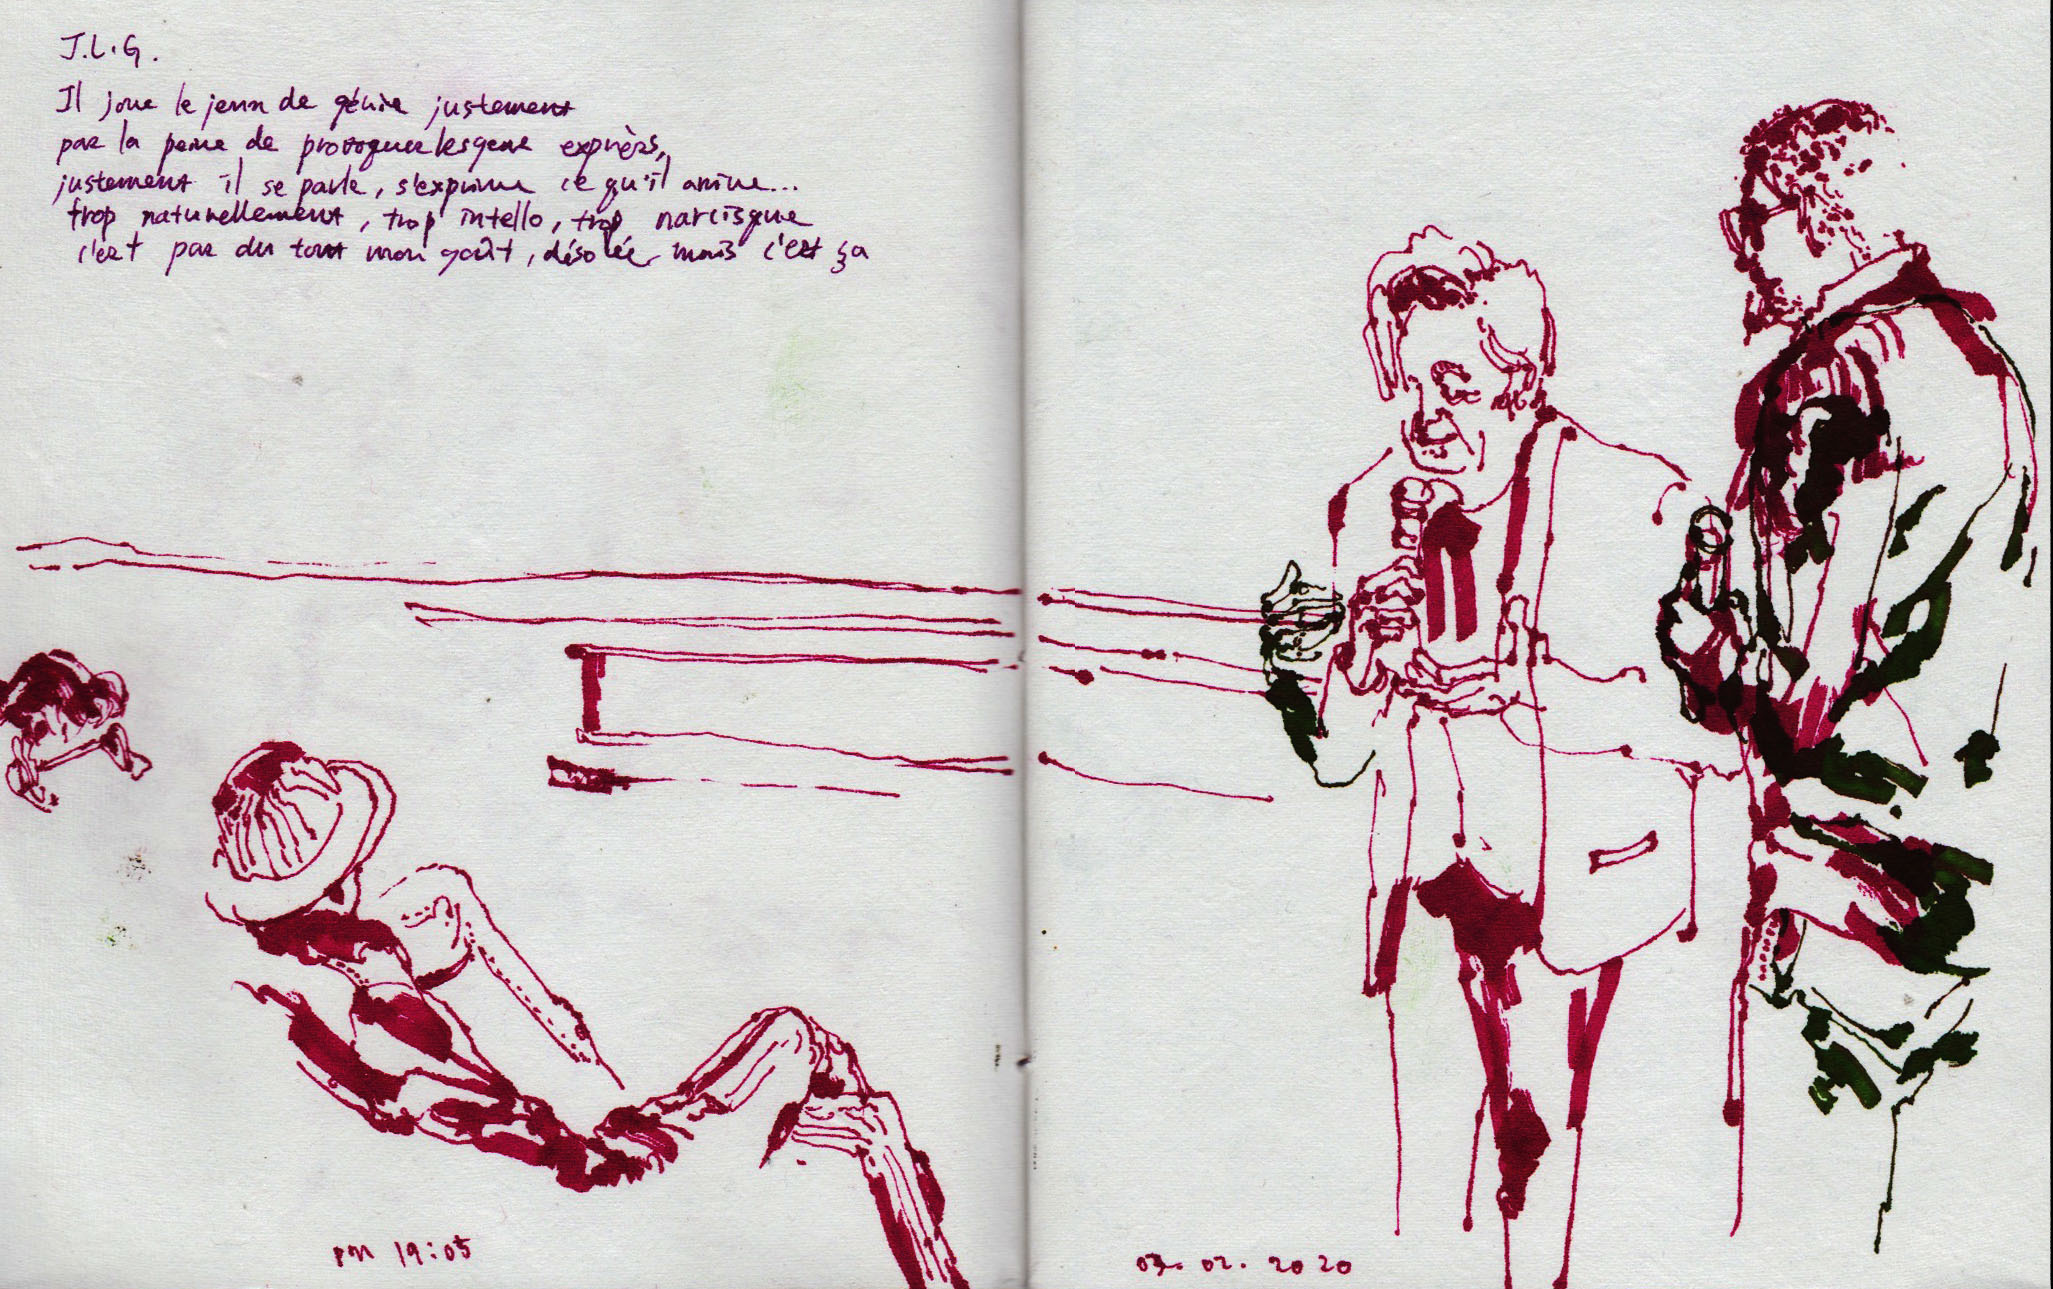 J.L.G.
Il joue le jeun de génie justement
par la peine de provoquer les gens exprès,
justement il se parle, s'exprime ce qu'il anime...
trop naturellement, trop intello, trop narcisque
c'est pas du tout mon goût, désolée mais c'est ça
pm 19:05
03. 02. 2020